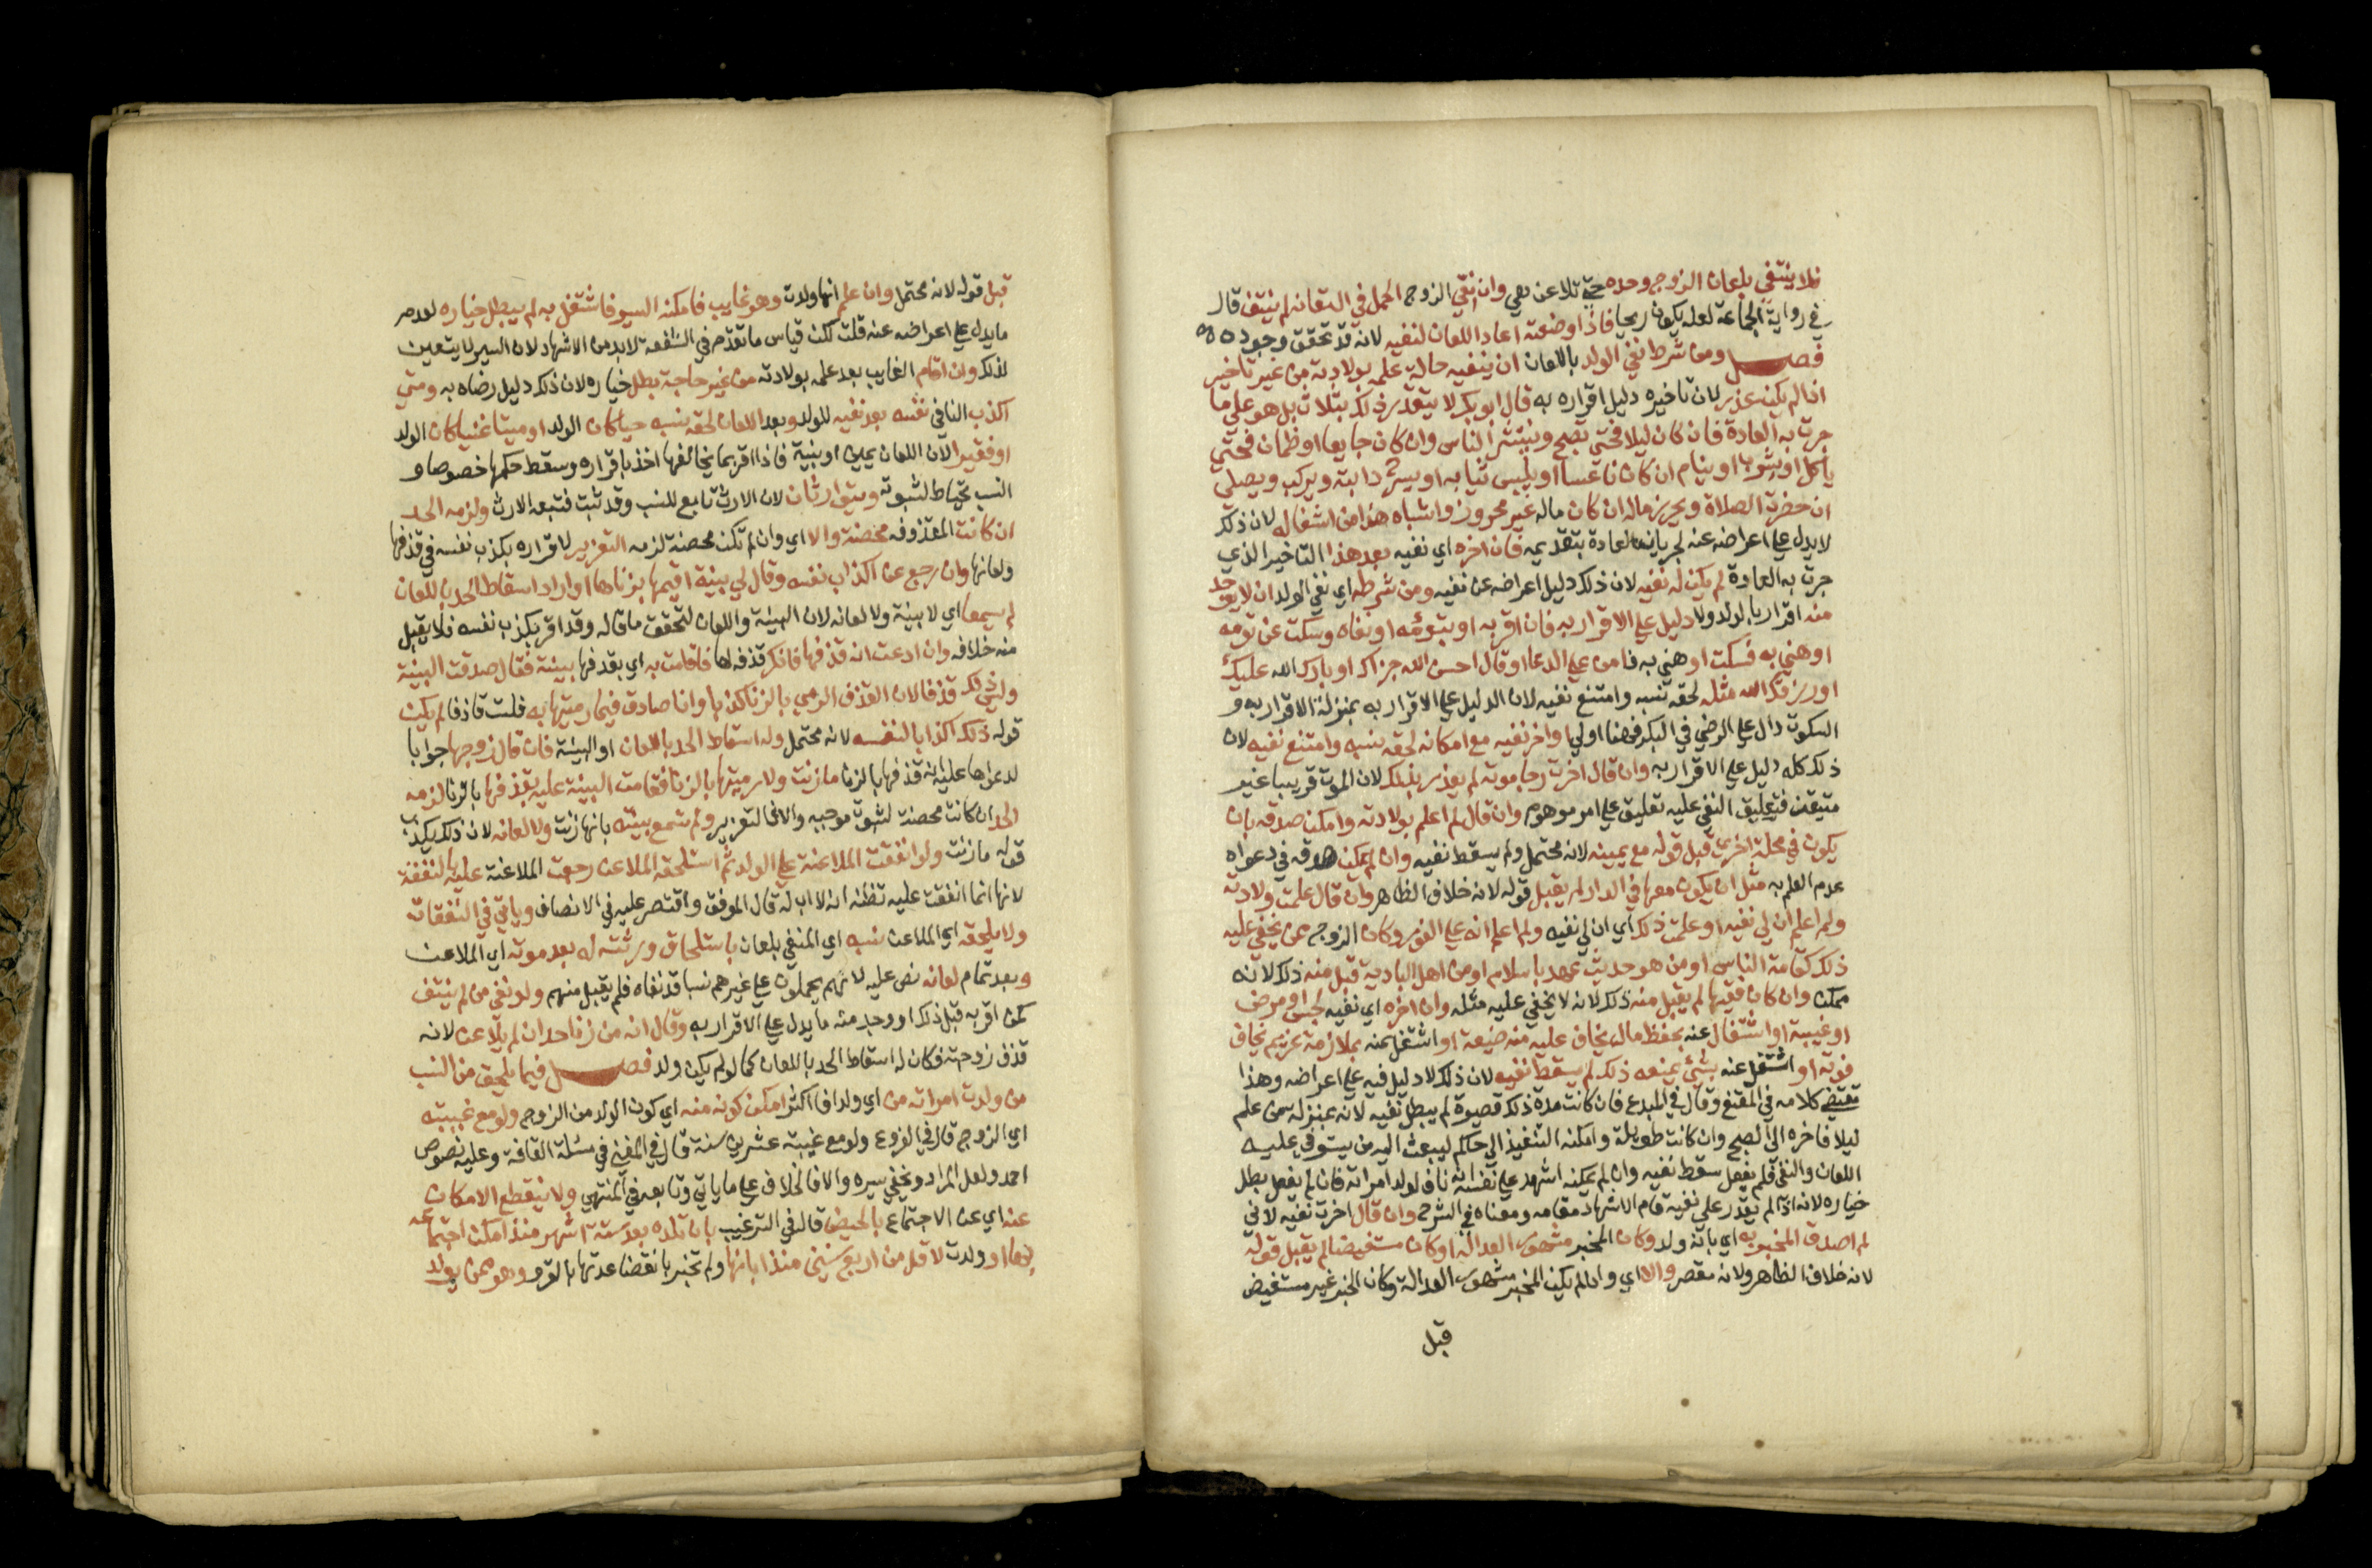 فلا ينتفي بلعان الزوج وحده حتى تلاعن هي وان نفي الزوج الحمل في التعانه لم ينتف قال
في رواية الجماعة لعله يكون ريحا فاذا وضعته اعاد اللعان لنفيه لانه قد تحقق وجوده
فصل ومن شرط نفي الولد باللعان ان ينفيه حالة علمه بولادته من غير تاخير
اذا لم يكن عذر لان تاخيره دليل اقراره به قال ابو بكر لا يتقدر ذلك بثلاث بل هو على ما
جرت به العادة فان كان ليلا فحتي يصبح وينتشر الناس وان كان جايعا او ظمان فحتي
ياكل او يشرب او ينام ان كان ناعسا او يلبس ثيابه او يسرج دابته ويركب ويصلي
ان حضرت الصلاة ويحرز ماله ان كان ماله غير محروز واشباه هذا من اشغاله لان ذلك
لا يدل علي اعراضه عنه لجريان العادة بتقديمه فان اخره اي نفيه بعد هذا التاخير الذي
جرت به العادة لم يكن له نفيه لان ذلك دليل اعراضه عن نفيه ومن شرطه اي نفي الولد ان لا يوجد
منه اقرار بالولد ولا دليل علي الاقرار به فان اقر به او بتوئمه او نفاه وسكت عن تومه
او هني به فسكت او هني به فامن علي الدعا او قال احسن الله جزاك او بارك الله عليك
او رزقك الله مثله لحقه نسبه وامتنع نفيه لان الدليل علي الاقرار به بمنزلة الاقرار به و
السكوت دال علي الرضي في البكر فهنا اولي او اخر نفيه مع امكانه لحقه نسبه وامتنع نفيه لان
ذلك كله دليل علي الاقرار به وان قال اخرت رجا موته لم يعذر بذلك لان الموت قريبا غير
متيقن فتعليق النفي عليه تعليق علي امر موهوم وان قال لم اعلم بولادته وامكن صدقه بان
يكون في محلة اخري قبل قوله مع يمينه لانه محتمل ولم يسقط نفيه وان لم يمكن صدقه في دعواه
عدم العلم به مثل ان يكون معها في الدار لم يقبل قوله لانه خلاف الظاهر وان قال علمت ولادته
ولم اعلم ان لي نفيه او علمت ذلك اي ان لي نفيه ولم اعلم انه علي الفور وكان الزوج ممن يخفي عليه
ذلك كعامة الناس او من هو حديث عهد باسلام او من اهل البادية قبل منه ذلك لانه
ممكن وان كان فقيها لم يقبل منه ذلك لانه لا يخفي عليه مثله وان اخره اي نفيه لحبس او مرض
او غيبة او اشتغال عنه بحفظ مال يخاف عليه منه ضيعة او اشتغل عنه بملازمة غريم يخاف
فوته او اشتغل عنه بشئ يمنعه ذلك لم يسقط نفيه لان ذلك لا دليل فيه علي اعراضه وهذا
مقتضي كلامه في المقنع وقال في المبدع فان كانت مدة ذلك قصيرة لم يبطل نفيه لانه بمنزلة من علم
ليلا فاخره الى الصبح وان كانت طويلة وامكنه التنفيذ الي حاكم ليبعث اليه من يستوفي عليه
اللعان والنفي فلم يفعل سقط نفيه وان لم يمكنه اشهد علي نفسه انه ناف لولد امراته فان لم يفعل بطل
خياره لانه اذا لم يقدر على نفيه قام الاشهاد مقامه ومعناه في الشرح وان قال اخرت نفيه لاني
لم اصدق المخبر به اي بانه ولد وكان المخبر مشهور العدالة او كان مستفيضا لم يقبل قوله
لانه خلاف الظاهر ولانه مقصر والا اي وان لم يكن المخبر مشهور العدالة وكان الخبر غير مستفيض
قبل
قبل قوله لانه محتمل وان علم انها ولدت وهو غايب فامكنه السير فاشتغل به لم يبطل خياره لعدم
ما يدل علي اعراضه عنه قلت لكن قياس ما تقدم في الشفعة لا بد من الاشهاد لان السير لا يتعين
لذلك وان اقام الغايب بعد علمه بولادته من غير حاجة بطل خياره لان ذلك دليل رضاه به ومتي
اكذب النافي نفسه بعد نفيه للولد وبعد اللعان لحقه نسبه حيا كان الولد او ميتا غنيا كان الولد
او فقيرا لان اللعان يمين او بينة فاذا اقر بما يخالفها اخذ باقراره وسقط حكمها خصوصا و
النسب يحتاط لثبوته ويتوارثان لان الارث تابع للنسب وقد ثبت فتبعه الارث ولزمه الحد
ان كانت المقذوفه محصنة والا اي وان لم تكن محصنة لزمه التعزير لاقراره بكذب نفسه في قذفها
ولعانها وان رجع عن اكذاب نفسه وقال لي بينة اقيمها بزناها او اراد اسقاط الحد باللعان
لم يسمعا اي لا بينة ولا لعانه لان البينة واللعان لتحقق ما قاله وقد اقر بكذب نفسه فلا يقبل
منه خلافه وان ادعت انه قذفها فانكر قذفه لها فاقامت به اي بقذفها بينة فقال صدقت البينة
وليس ذلك قذفا لان القذف الرمي بالزنا كذبا وانا صادق فيما رميتها به فلست قاذفا لم يكن
قوله ذلك اكذابا لنفسه لانه محتمل وله اسقاط الحد باللعان او البينة فان قال زوجها جوابا
لدعواها عليه انه قذفها بالزنا ما زنت ولا رميتها بالزنا فقامت البينة عليه بقذفها بالزنا لزمه
الحد ان كانت محصنة لثبوت موجبه والا فالتعزير ولم تسمع بينته بانها زنت ولا لعانه لان ذلك يكذب
قوله ما زنت ولو انفقت الملاعنة علي الولد ثم استلحقه الملاعن رجعت الملاعنة عليه بالنفقة
لانها انما انفقت عليه تظنه انه لا اب له قال الموفق واقتصر عليه في الانصاف وياتي في النفقات
ولا يلحقه اي الملاعن نسبه اي المنفي بلعان باستلحاق ورثته له بعد موته اي الملاعن
وبعد تمام لعانه نص عليه لانهم يحملون علي غيرهم نسبا قد نفاه فلم يقبل منهم ولو نفي من لم ينتف
كمن اقر به قبل ذلك او وجد منه ما يدل علي الاقرار به وقال انه من زنا حد ان لم يلاعن لانه
قذف زوجته فكان له اسقاط الحد باللعان كما لو لم يكن ولد فصل فيما يلحق من النسب
من ولدت امراته من اي ولدا فاكثر امكن كونه منه اي كون الولد من الزوج ولو مع غيبته
اي الزوج قال في الفروع ولو مع غيبة عشرين سنة قال في المغني في مسئلة القافة وعليه نصوص
احمد ولعل المراد ويخفي سيره والا فالخلاف علي ما ياتي وتابعه في المنتهي ولا ينقطع الامكان
عنه اي عن الاجتماع بالحيض قاله في الترغيب بان تلده بعد ستة اشهر منذ امكن اجتماعه
بها او ولدت لاقل من اربع سنين منذ ابانها ولم تخبر بانقضا عدتها بالقرو وهو ممن يولد